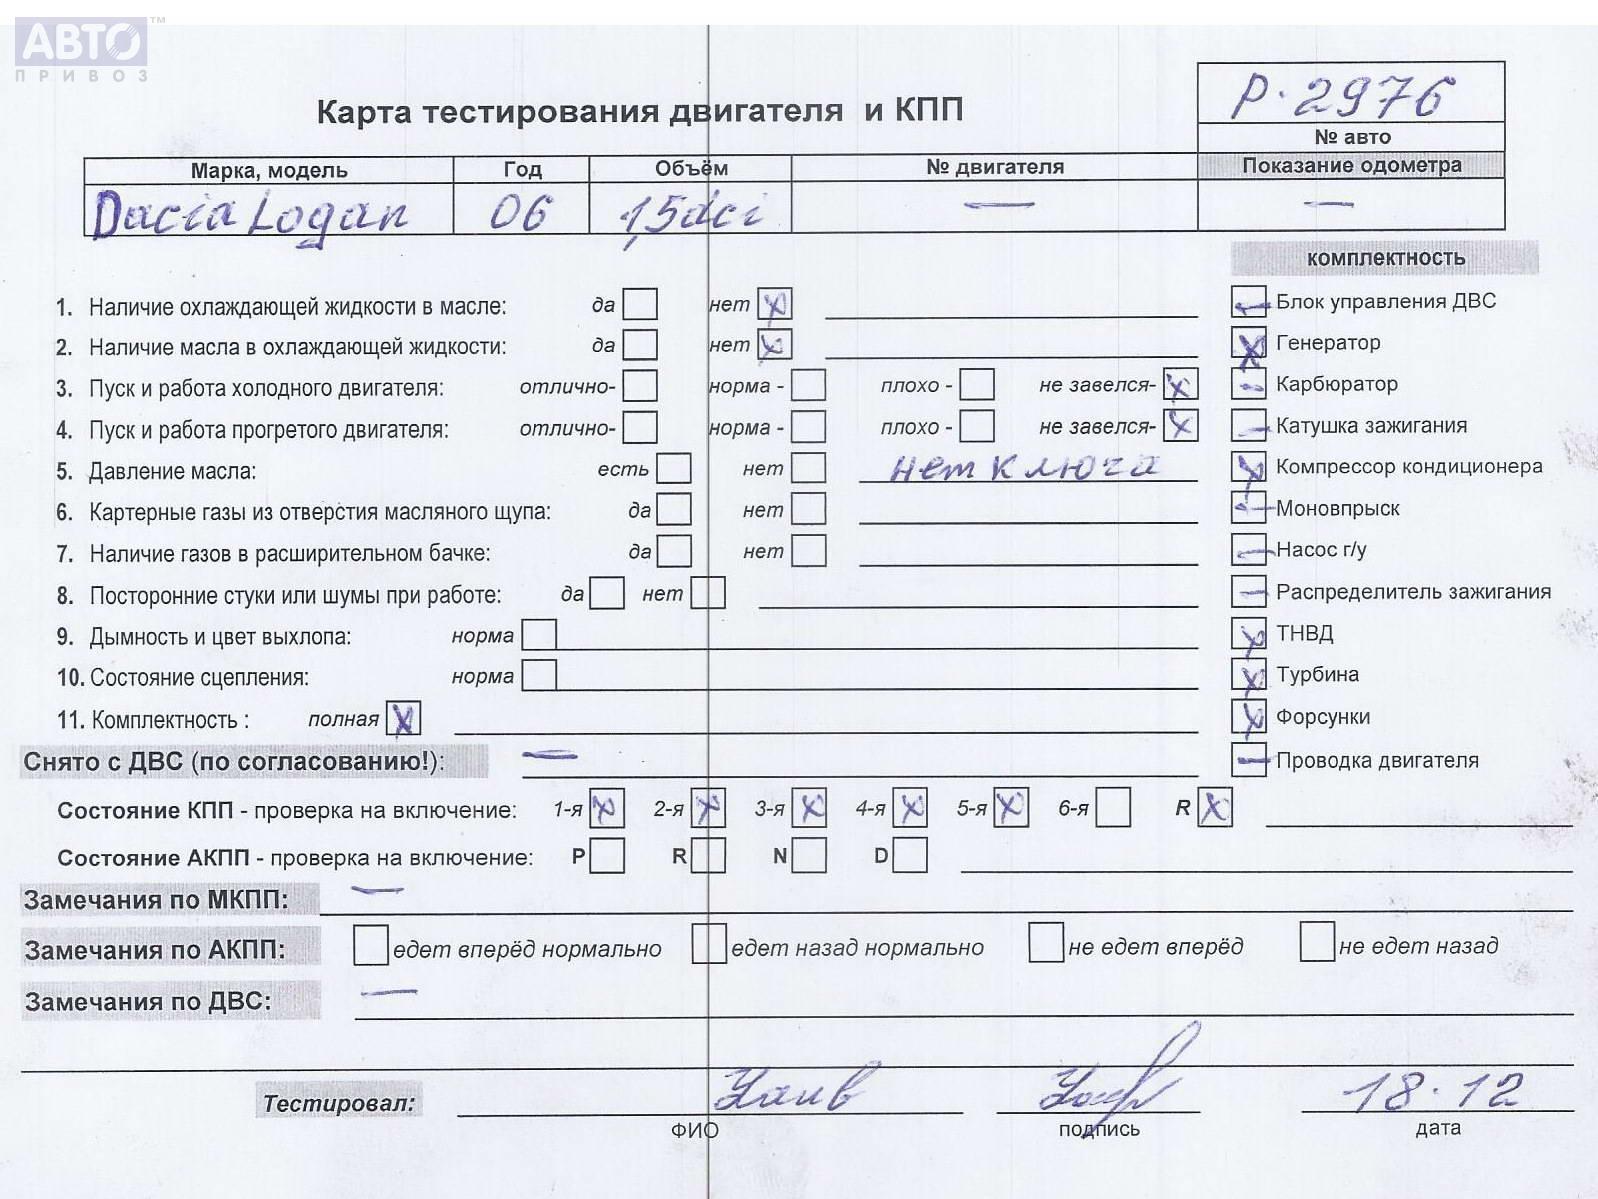 АВТО™
ПРИВОЗ
Р·2976
Карта тестирования двигателя и КПП
№ авто
Марка, модель Год Объём № двигателя Показание одометра
Dacia Logan 06 1,5dci — —
комплектность
1. Наличие охлаждающей жидкости в масле: да нет x
Блок управления ДВС
2. Наличие масла в охлаждающей жидкости: да нет x
Генератор
3. Пуск и работа холодного двигателя: отлично- норма - плохо - не завелся- x
Карбюратор
4. Пуск и работа прогретого двигателя: отлично- норма - плохо - не завелся- x
Катушка зажигания
5. Давление масла: есть нет нет ключа
Компрессор кондиционера
6. Картерные газы из отверстия масляного щупа: да нет
Моновпрыск
7. Наличие газов в расширительном бачке: да нет
Насос г/у
8. Посторонние стуки или шумы при работе: да нет
Распределитель зажигания
9. Дымность и цвет выхлопа: норма
ТНВД
10. Состояние сцепления: норма
Турбина
11. Комплектность : полная x
Форсунки
Снято с ДВС (по согласованию!): —
Проводка двигателя
Состояние КПП - проверка на включение: 1-я x 2-я x 3-я x 4-я x 5-я x 6-я R x
Состояние АКПП - проверка на включение: P R N D
Замечания по МКПП: —
Замечания по АКПП: едет вперёд нормально едет назад нормально не едет вперёд не едет назад
Замечания по ДВС: —
Тестировал: 18.12
ФИО подпись дата